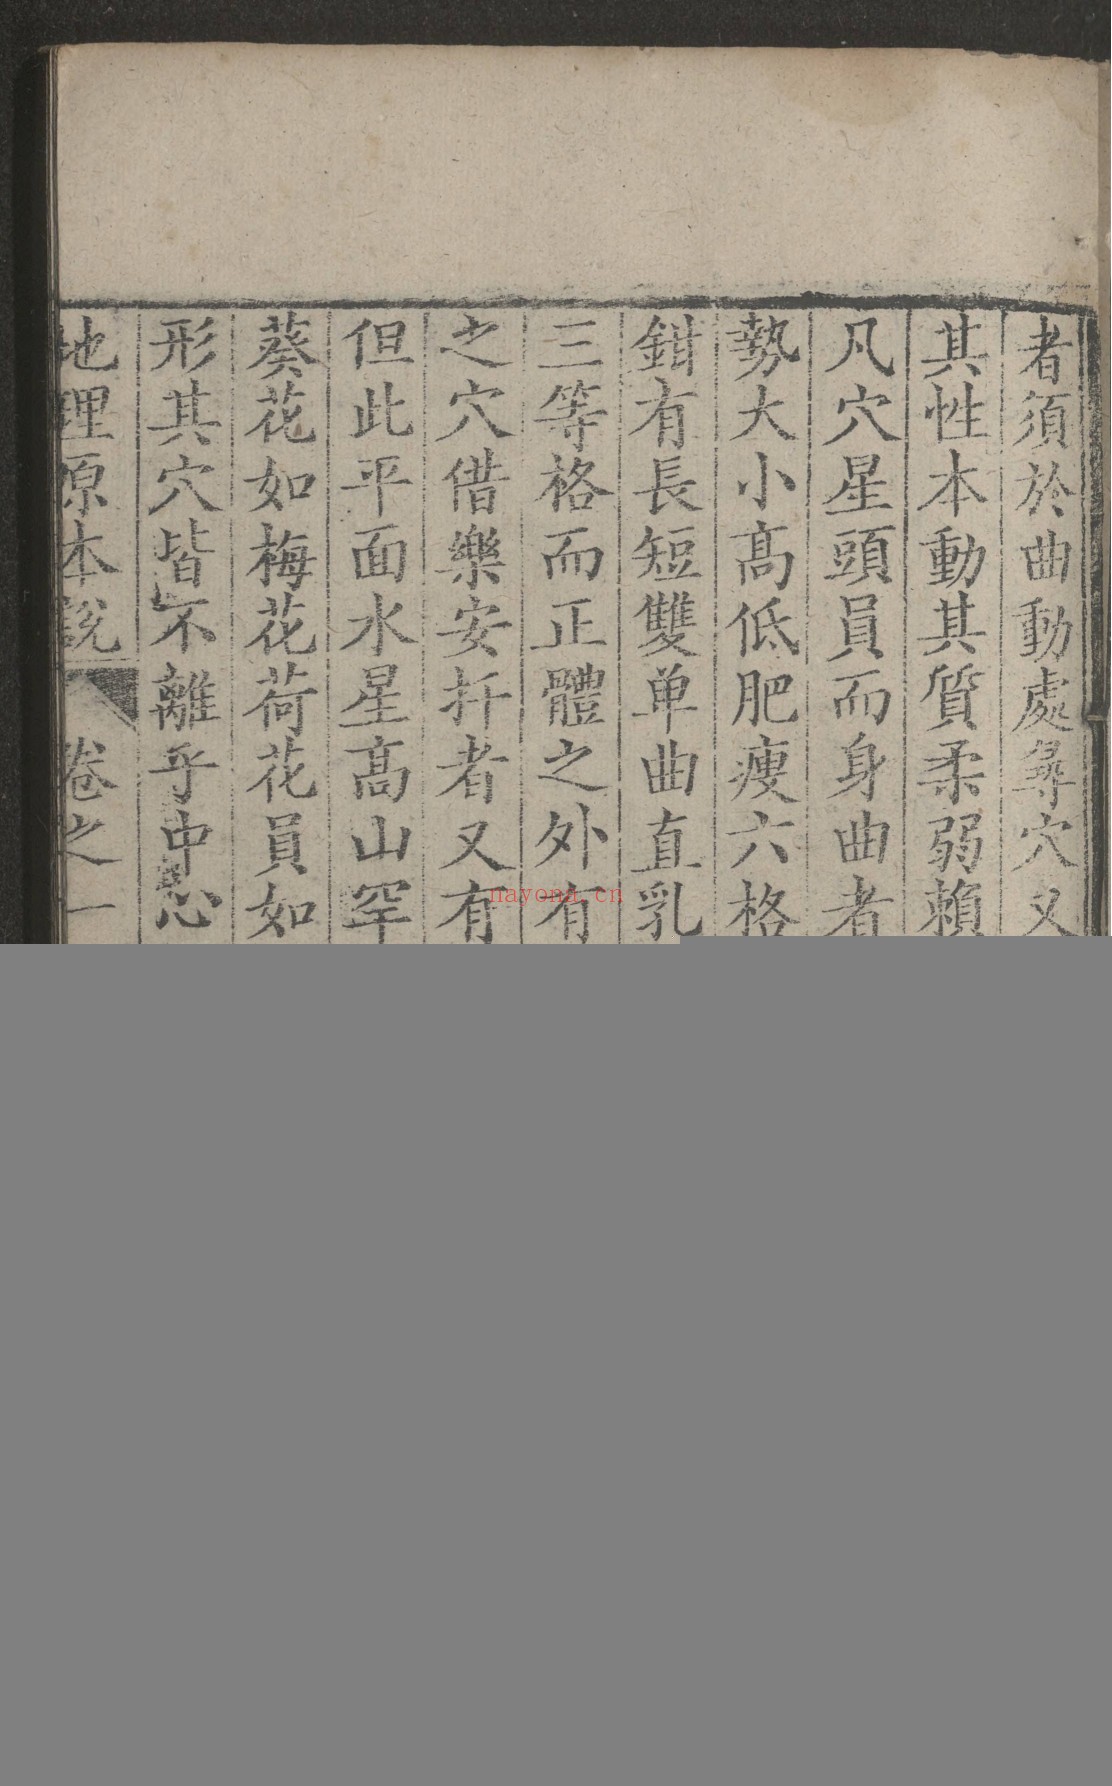 者須於曲動處尋穴又
其性本動其質柔弱賴
凡穴星頭員而身曲者
勢大小高低肥瘦六格
鉗有長短雙单曲直乳
三等格而正體之外有
之穴借樂安扦者又有
但此平面水星高山罕
葵花如梅花荷花員如
形其穴皆不離乎中心
地理原本說 卷之一
nayona.cn